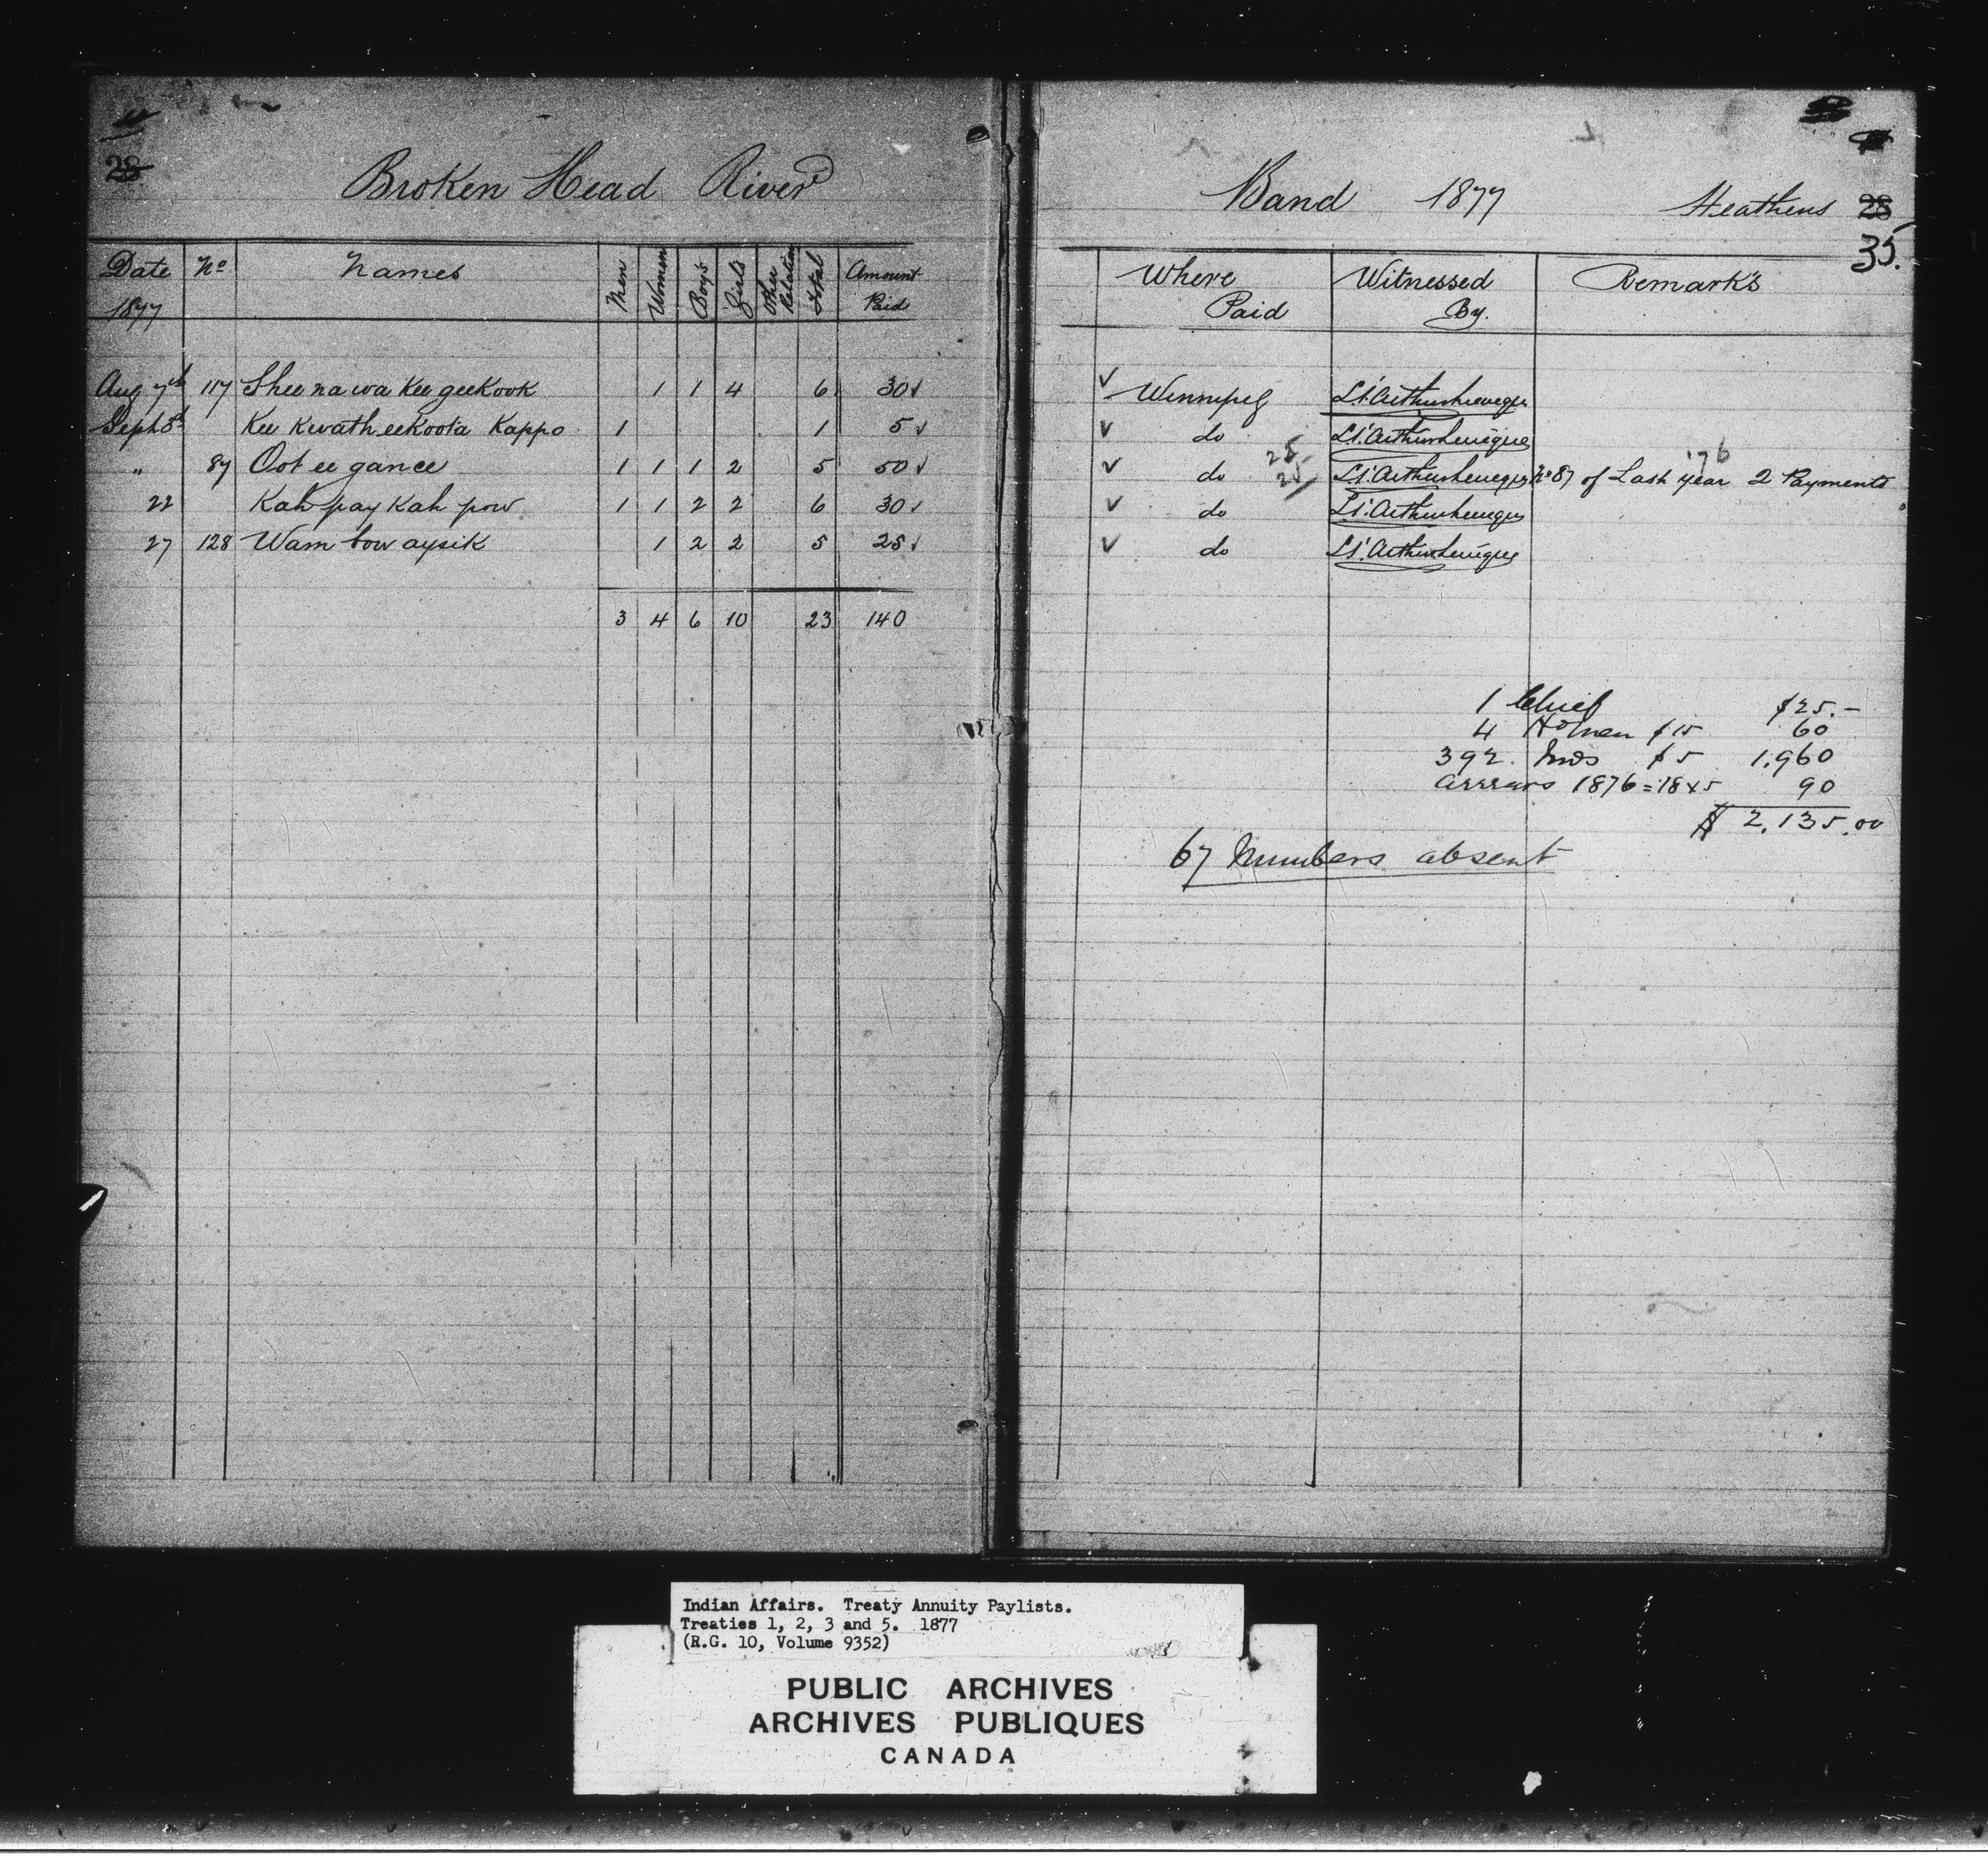 28
Broken Head River
Date No Names Men Women Boys Girls Other Relation Total Amount Paid
1877
Aug 7th 117 Shee na wa Kee geekook 1 1 4 6 30 ✓
Sept 8th Kee Kwath eekoota Kappo 1 1 5 ✓
" 87 Oot ee gance 1 1 1 2 5 50 ✓
22 Kah pay Kah pow 1 1 2 2 6 30 ✓
27 128 Wam bow aysik 1 2 2 5 25 ✓
3 4 6 10 23 140
Band 1877 Heathens 28
35.
Where Paid Witnessed By. Remarks
✓ Winnipeg
✓ do
✓ do 25 25 No 87 of Last year '76 2 Payments
✓ do
✓ do
1 Chief $25.-
4 $15 60
392 Inds $5 1.960
arrears 1876 = 18 x 5 90
$ 2,135.00
67 Numbers absent
Indian Affairs. Treaty Annuity Paylists.
Treaties 1, 2, 3 and 5. 1877
(R.G. 10, Volume 9352)
PUBLIC ARCHIVES
ARCHIVES PUBLIQUES
CANADA